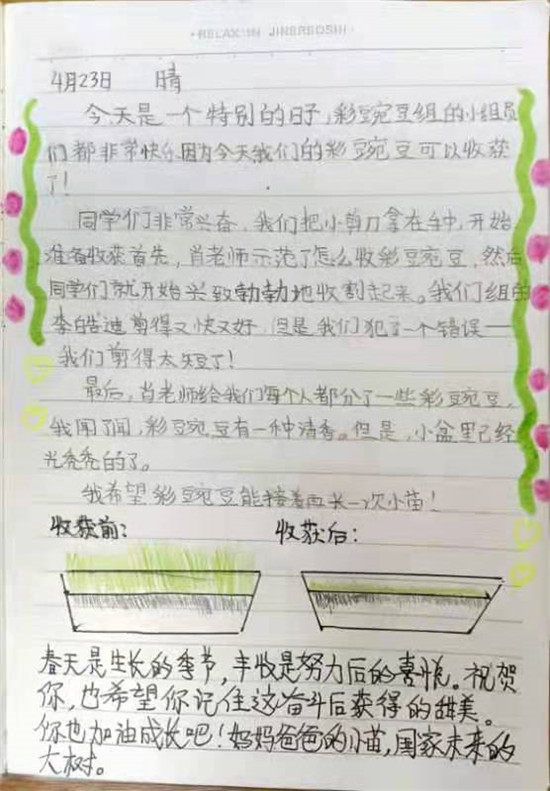 ·RELAX IN JINERBOSHI·
4月23日 晴
今天是一个特别的日子，彩豌豆组的小组员
们都非常快乐因为今天我们的彩豌豆可以收获
了！
同学们非常兴奋，我们把小剪刀拿在手中，开始
准备收获首先，肖老师示范了怎么收彩豌豆，然后
同学们就开始兴致勃勃地收割起来。我们组的
李皓迪剪得又快又好，但是我们犯了一个错误——
我们剪得太短了！
最后，肖老师给我们每个人都分了一些彩豌豆，
我闻了闻，彩豌豆有一种清香。但是，小盆里已经
光秃秃的了。
我希望彩豌豆能接着再长一次小苗！
收获前：
收获后：
春天是生长的季节，丰收是努力后的喜悦。祝贺
你，也希望你记住这奋斗后获得的甜美。
你也加油成长吧！妈妈爸爸的小苗，国家未来的
大树。